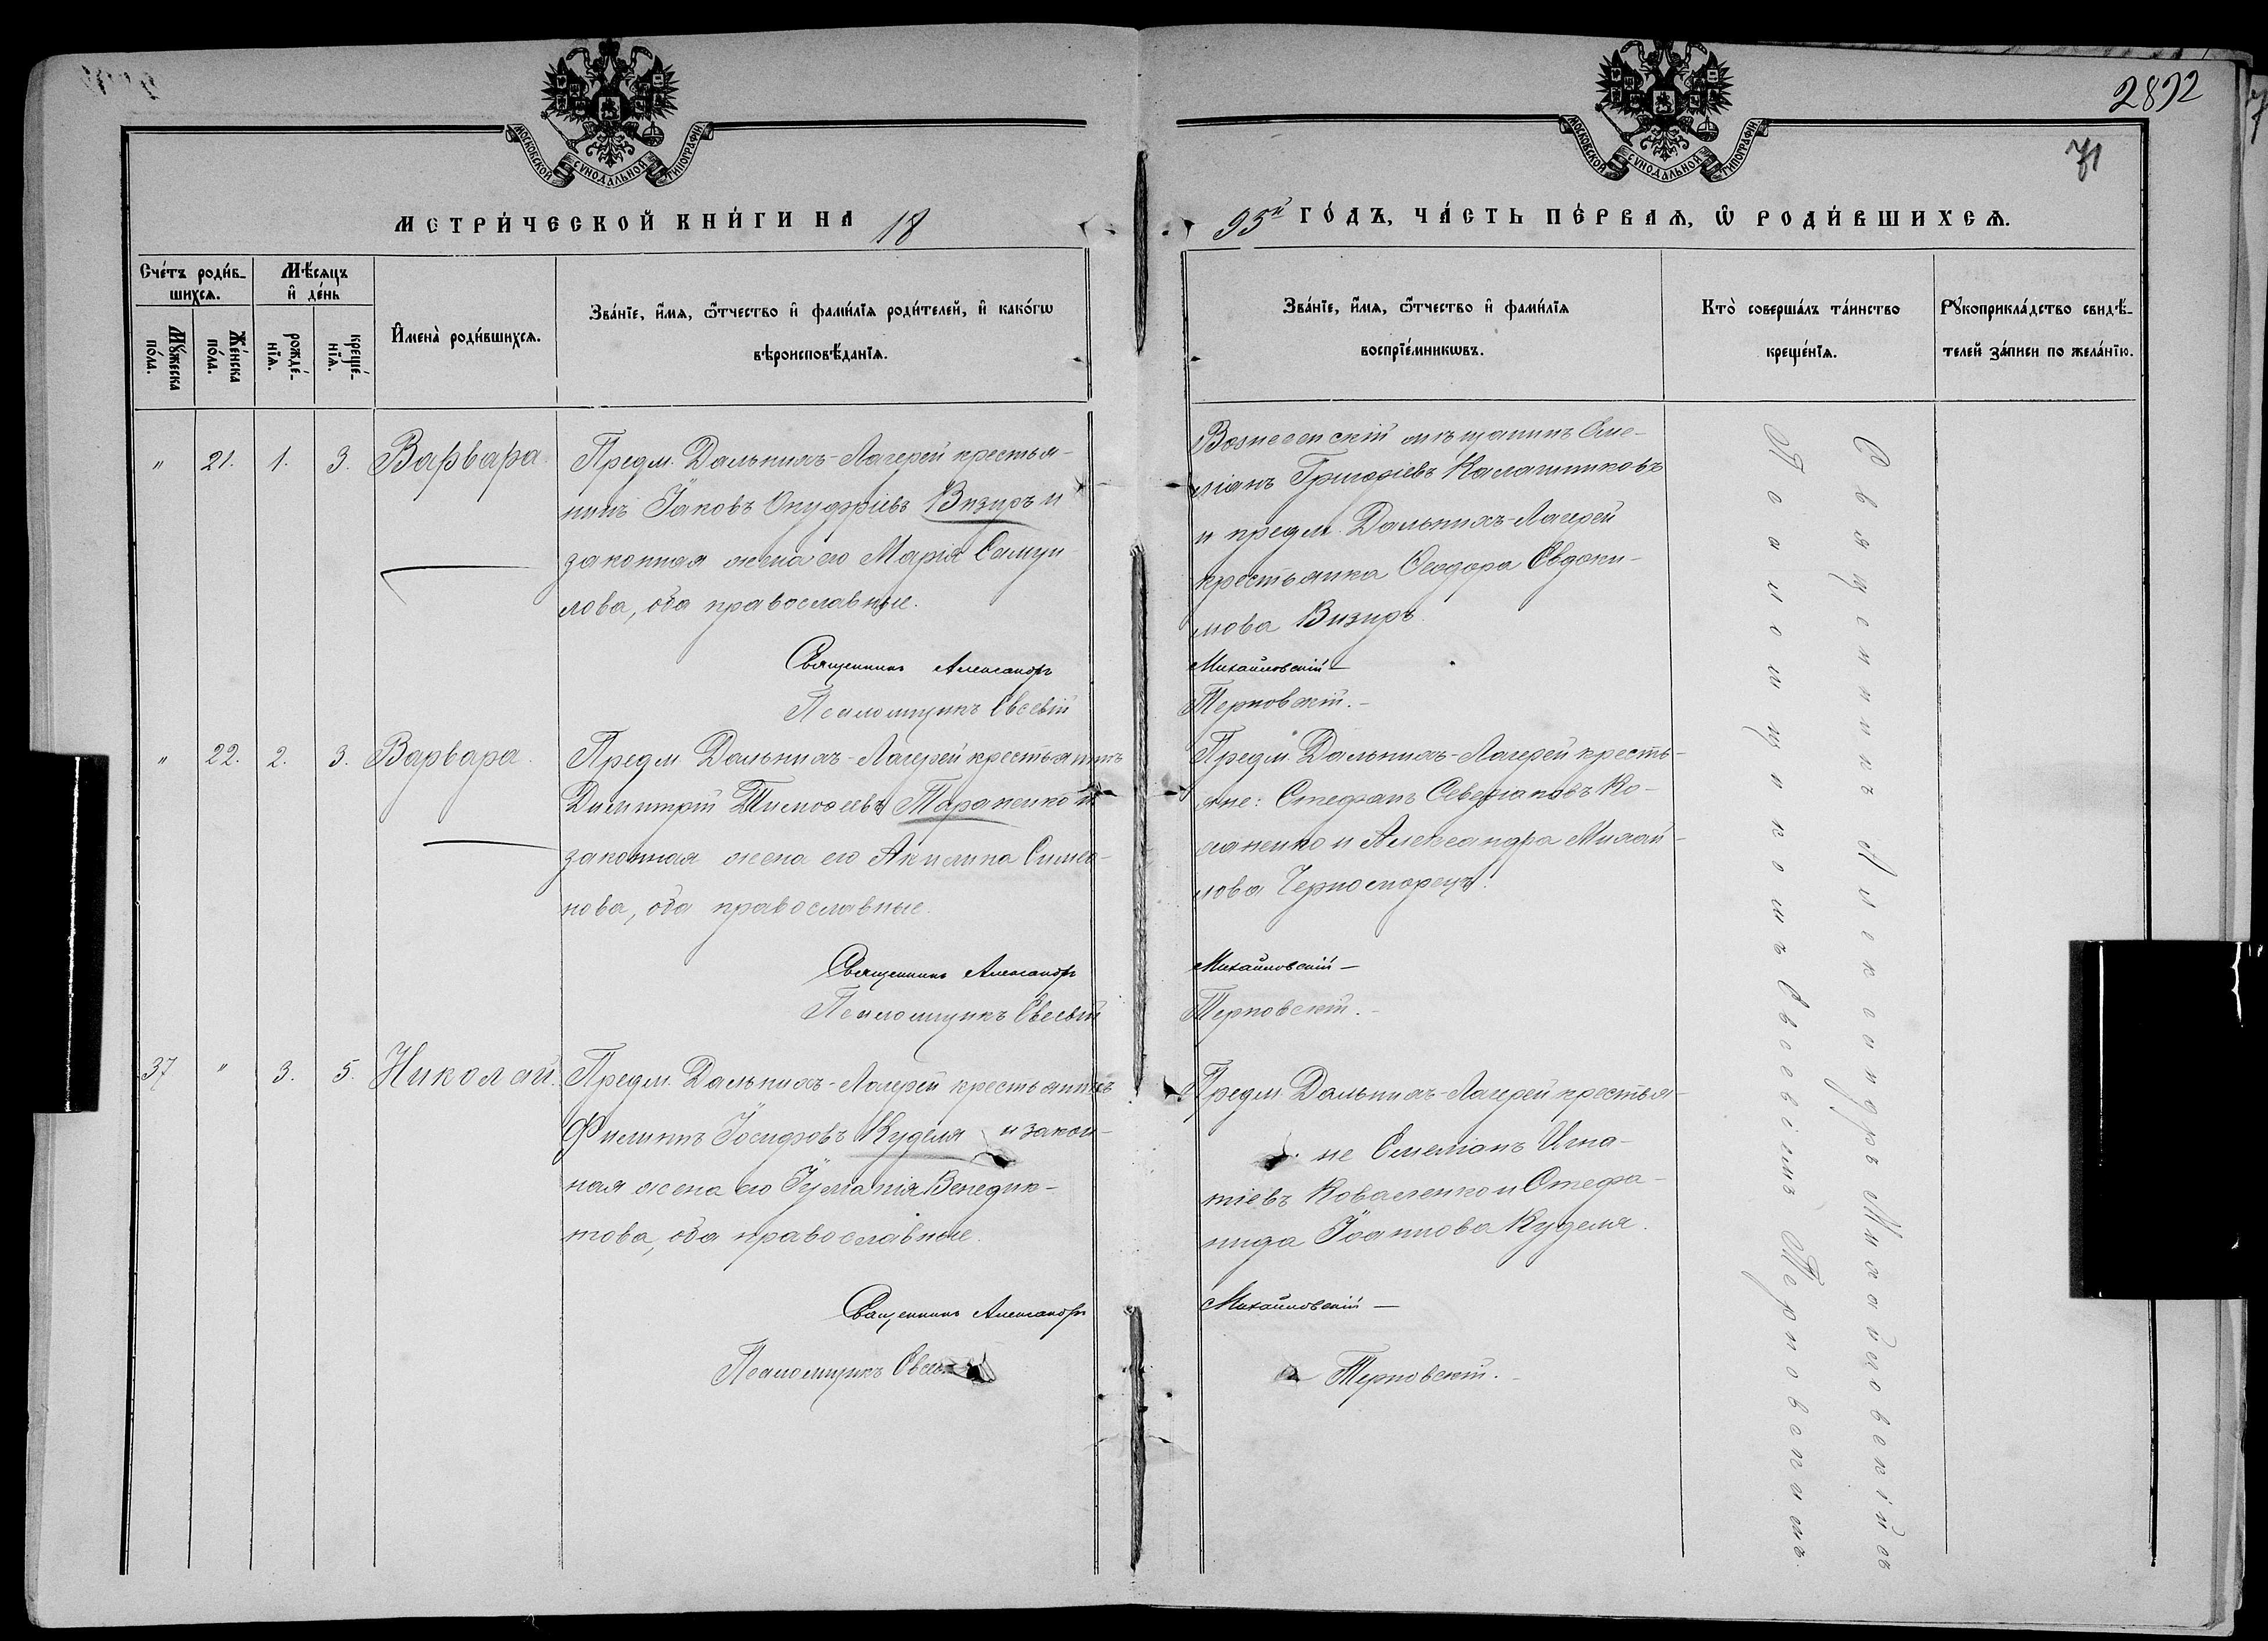 2892
71
МОСКОВСКОЙ СѴНОДАЛЬНОЙ ТИПОГРАФІИ.
МОСКОВСКОЙ СѴНОДАЛЬНОЙ ТИПОГРАФІИ.
МЕТРИ́ЧЕСКОЙ КНИ́ГИ НА 18
93й ГО́ДЪ, ЧА́СТЬ ПЕ́РВАЯ, Ѡ РОДИ́ВШИХСЯ.
Сче́тъ роди́в-
шихся.
Мꙋ́жеска по́ла.
Же́нска по́ла.
Мѣ́сяцъ
и҆ де́нь
рожде́-
нїя.
креще́-
нїя.
И҆мена̀ роди́вшихся.
Зва́нїе, и҆́мя, ѻ҆́тчество и҆ фами́лїя роди́телей, и҆ како́гѡ
вѣроисповѣ́данїя.
Зва́нїе, и҆́мя, ѻ҆́тчество и҆ фами́лїя
воспрїе́мникѡвъ.
Кто̀ соверша́лъ та́инство
креще́нїя.
Рꙋкоприкла́дство свидѣ́-
телей за́писи по жела́нїю.
" 21. 1. 3. Варвара
Предм. Дальнихъ-Лагерей крестья-
нинъ Іаковъ Онуфріевъ Визиръ и
законная жена его Марія Самуи-
лова, оба православные.
Священникъ Александръ
Псаломщикъ Евсевій
Вознесенскій мѣщанинъ Еме-
ліанъ Григоріевъ Калашниковъ
и предм. Дальнихъ-Лагерей
крестьянка Ѳеодора Евдоки-
мова Визиръ.
Михайловскій
Терновскій.
" 22. 2. 3. Варвара.
Предм. Дальнихъ-Лагерей крестьянинъ
Димитрій Тимоѳеевъ Тараненко и
законная жена его Акилина Симео-
нова, оба православные.
Священникъ Александръ
Псаломщикъ Евсевій
Предм. Дальнихъ-Лагерей кресть-
яне: Стефанъ Северіановъ Ко-
валенко и Александра Михай-
лова Черноморецъ.
Михайловскій
Терновскій.
37 " 3. 5. Николай.
Предм. Дальнихъ-Лагерей крестьянинъ
Филиппъ Іосифовъ Куделя и закон-
ная жена его Іуліанія Венедик-
това, оба православные.
Священникъ Александръ
Псаломщикъ
Предм. Дальнихъ-Лагерей крестья-
не Емеліанъ Игна-
тіевъ Коваленко и Стефа-
нида Іоаннова Куделя.
Михайловскій
Терновскій.
Священникъ Александръ Михайловскій съ
Псаломщикомъ Евсевіемъ Терновскимъ.